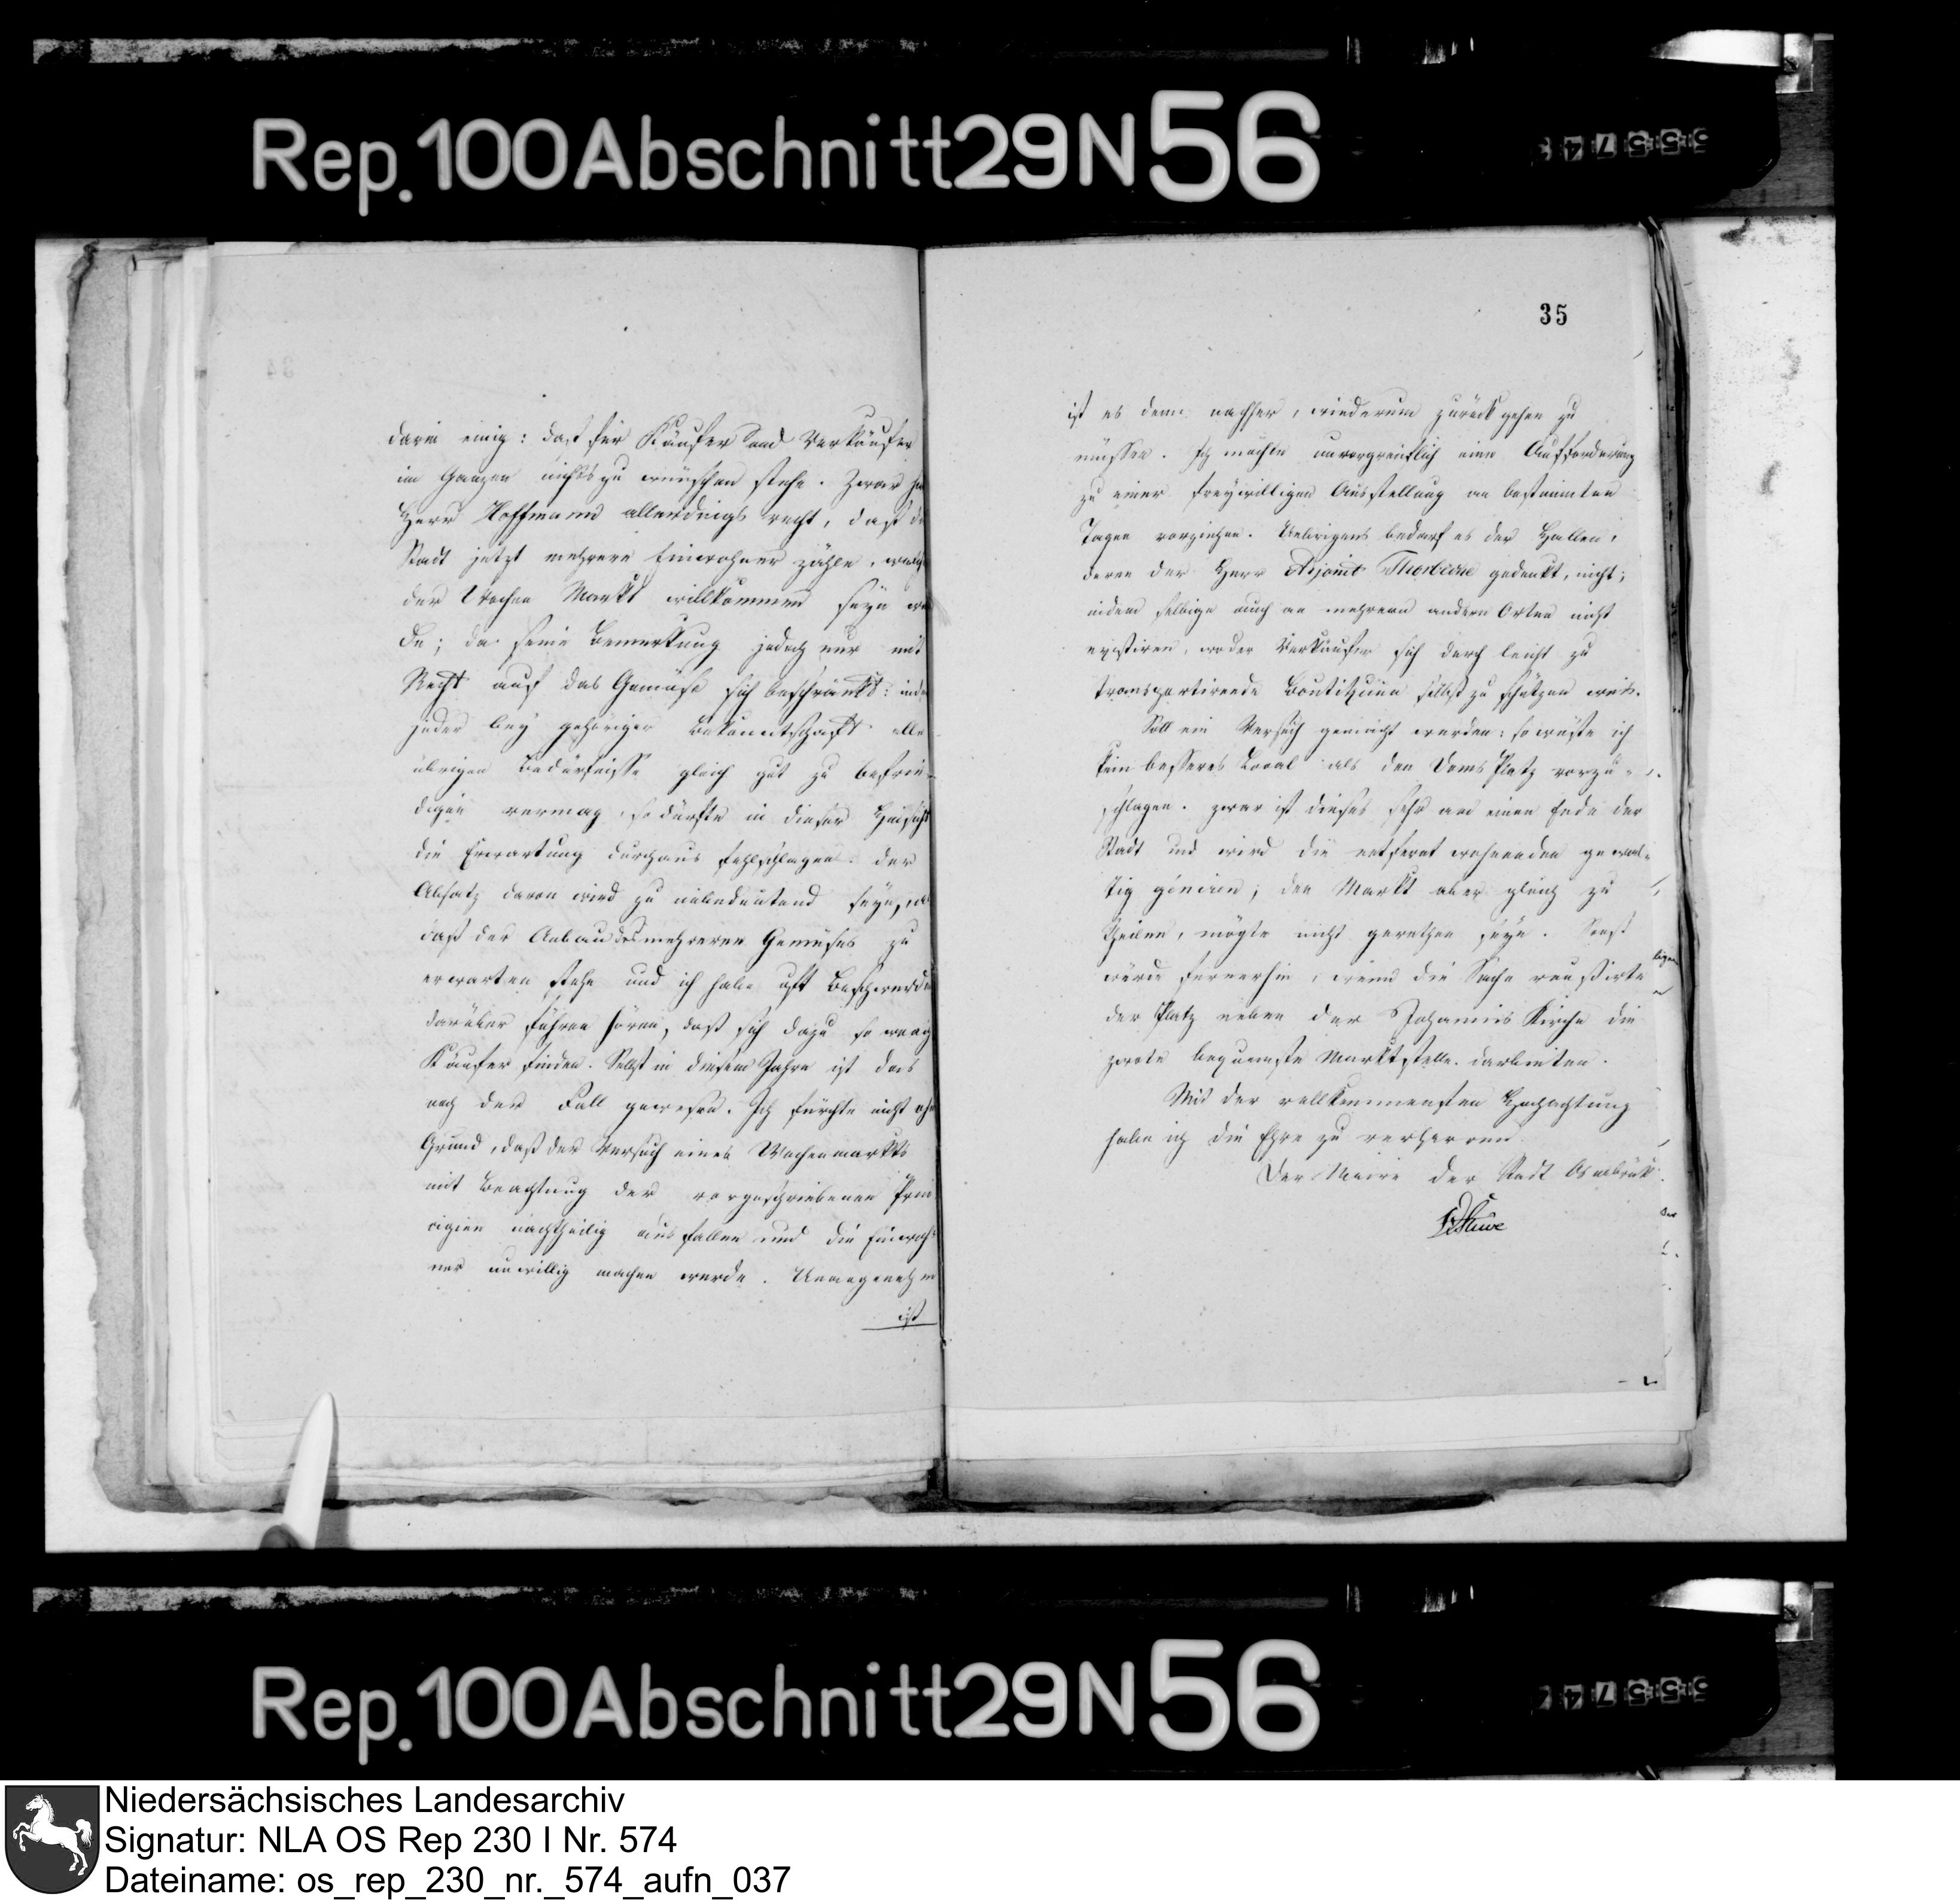 Rep. 100 Abschnitt 29 N 56
darin einig: daß für Käufer und Verkäufer
im Ganzen nichts zu wünschen stehe. Zwar
Herr Hoffmann allerdings recht, daß
Stadt jetzt mehrere Einwohner zähle,
der Wochen Markt willkommen seyn
de; da seine Bemerkung jedoch nur mit
Recht auf das Gemüse sich beschränkt:
jeder bey gehöriger Bekanntschaft alle
übrigen Bedürfnisse gleich gut zu befrie-
digen vermag, so dürfte in dieser Hinsicht
die Erwartung durchaus fehlschlagen. der
Absatz davon wird zu unbedeutend seyn,
daß der Anbau des mehreren Gemüses zu
erwarten stehe und ich habe oft Beschwerde
darüber führen hören, daß sich dazu so wenig
Käufer finden. Selbst in diesem Jahre ist das
noch der Fall gewesen. Ich fürchte nicht
Grund, daß der Versuch eines Wochenmarkts
mit Beachtung der vorgeschriebenen Prin
cipien nachtheilig ausfallen und die Einwoh-
ner unwillig machen werde. Unangenehm
ist
35
ist es dann nachher, wiederum zurück gehen zu
müssen. Ich möchte unvorgreiflich eine Aufforderung
zu einer freywilligen Ausstellung an bestimmten
Tagen vorziehen. Uebrigens bedarf es der Hallen,
deren der Herr Adjoint Thorbecke gedenkt, nicht;
indem selbige auch an mehrern andern Orten nicht
existiren, wo der Verkäufer sich durch leicht zu
transportirende Boutiquen selbst zu schützen weis.
Soll ein Versuch gemacht werden: so wüste ich
kein besseres Local als den Doms Platz vorzu-
schlagen. zwar ist dieses sehr an einem Ende der
Stadt und wird die entfernt wohnenden gewal-
tig geniren; den Markt aber gleich zu
theilen, mögte nicht gerathen seyn. Sonst
würde fernerhin, wenn die Sache reußirte
der Platz neben der Johannis Kirche die
zwote bequemste Marktstelle darbieten.
Mit der vollkommensten Hochachtung
habe ich die Ehre zu verharren
Der Maire der Stadt Osnabrück.
Stüve
Rep. 100 Abschnitt 29 N 56
Niedersächsisches Landesarchiv
Signatur: NLA OS Rep 230 I Nr. 574
Dateiname: os_rep_230_nr._574_aufn_037